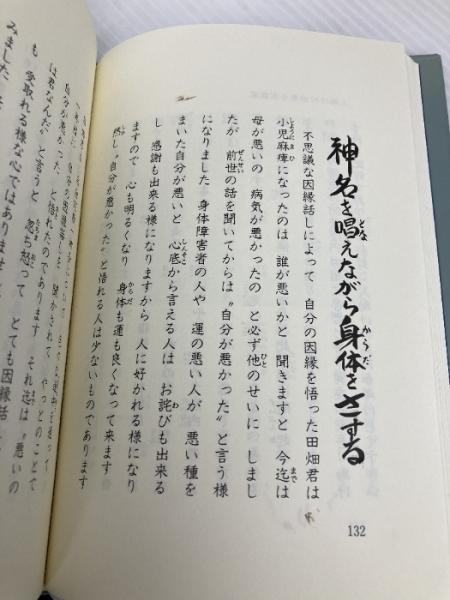 神名を唱えながら身体をさする
不思議な因縁話しによって 自分の因縁を悟った田畑君は
小児麻痺になったのは 誰が悪いかと 聞きますと 今迄は
母が悪いの 病気が悪かったの と必ず他のせいに しまし
たが 前世の話を聞いてからは〝自分が悪かった〟と言う様
になりました 身体障害者の人や 運の悪い人が 悪い種を
まいた自分が悪いと 心底から言える人は お詫びも出来る
し 感謝も出来る様になりますから 人に好かれる様になり
ますので 心も明るくなり 身体も運も良くなって来ます
然し〝自分が悪かった〟と悟れる人は少ないものであります
132
自分が悪かった
は君なんだ〟と言うと 忽ち怒って それ迄は〝悪いの
も 受取れる様な心ではありません とても因縁話し
みました